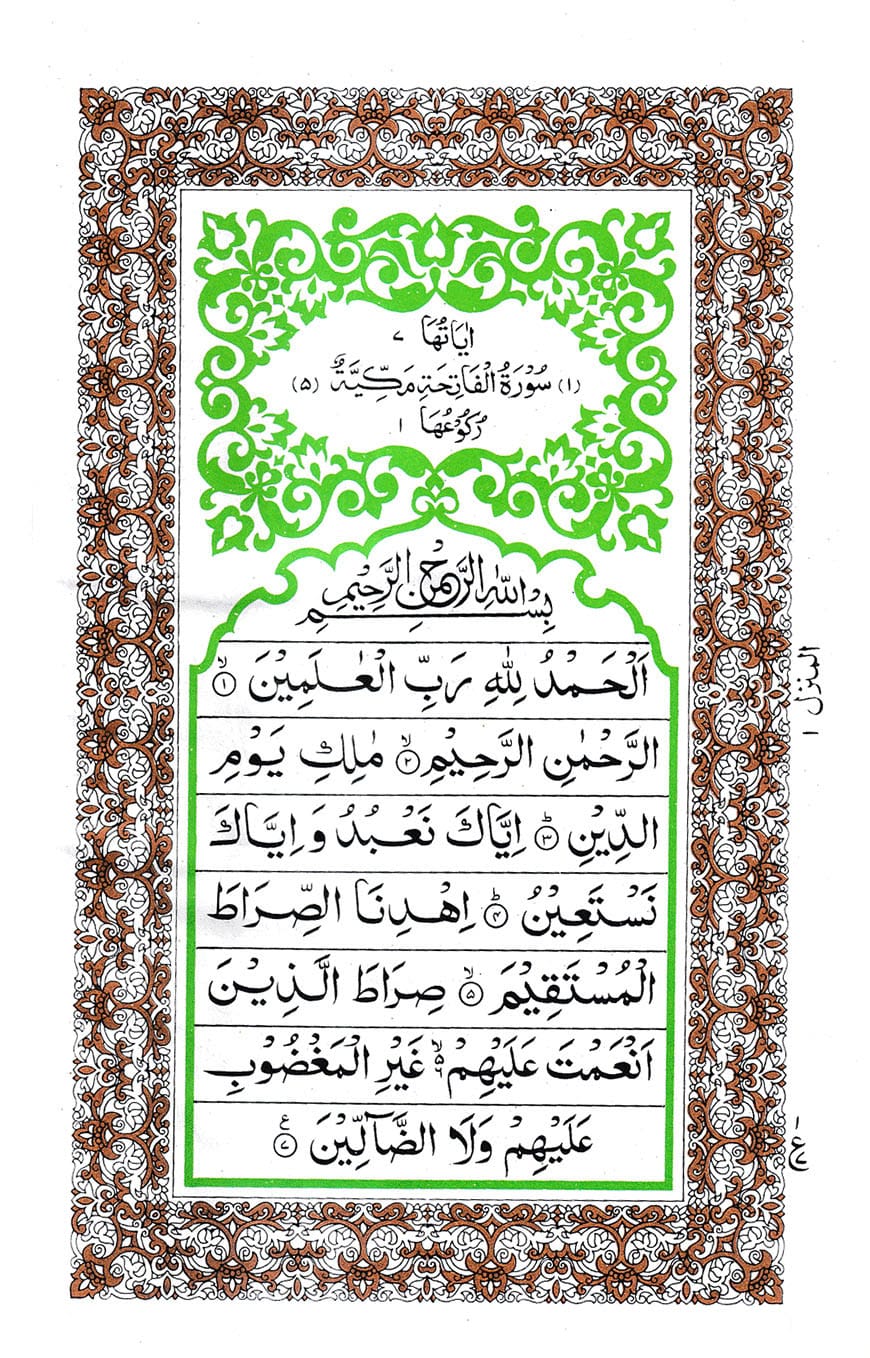 اٰیَاتُهَا ۷
(۱) سُوْرَةُ الْفَاتِحَةِ مَكِّیَّةٌ (۵)
رُكُوْعُهَا ۱
بِسْمِ اللّٰهِ الرَّحْمٰنِ الرَّحِیْمِ
اَلْحَمْدُ لِلّٰهِ رَبِّ الْعٰلَمِیْنَ ۙ۱
الرَّحْمٰنِ الرَّحِیْمِ ۙ۲ مٰلِكِ یَوْمِ
الدِّیْنِ ؕ۳ اِیَّاكَ نَعْبُدُ وَ اِیَّاكَ
نَسْتَعِیْنُ ؕ۴ اِهْدِنَا الصِّرَاطَ
الْمُسْتَقِیْمَ ۙ۵ صِرَاطَ الَّذِیْنَ
اَنْعَمْتَ عَلَیْهِمْ ۙ۬۶ غَیْرِ الْمَغْضُوْبِ
عَلَیْهِمْ وَلَا الضَّآلِّیْنَ ۷ ع
المنزل ۱